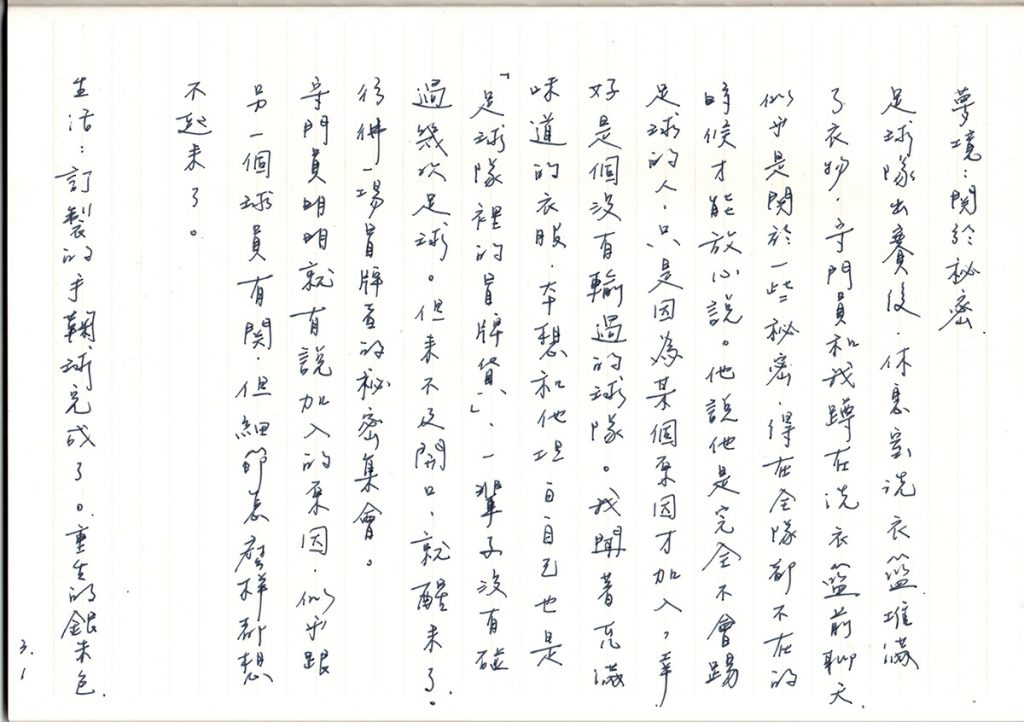 夢境：関於祕密.
足球隊出賽後，休息室洗衣籃堆滿
了衣物，守門員和我蹲在洗衣籃前聊天.
似乎是関於一些祕密，得在全隊都不在的
時候才能放心說。他說他是完全不會踢
足球的人，只是因為某個原因才加入，幸
好是個沒有輸過的球隊。我聞著充滿
味道的衣服，本想和他坦白自己也是
「足球隊裡的冒牌貨」，一輩子沒有碰
過幾次足球。但来不及開口，就醒来了.
彷彿一場冒牌者的祕密集會。
守門員明明就有說加入的原因，似乎跟
另一個球員有関，但細節怎麼樣都想
不起来了。
生活：訂製的手鞠球完成了。重生的銀朱色.
3.1